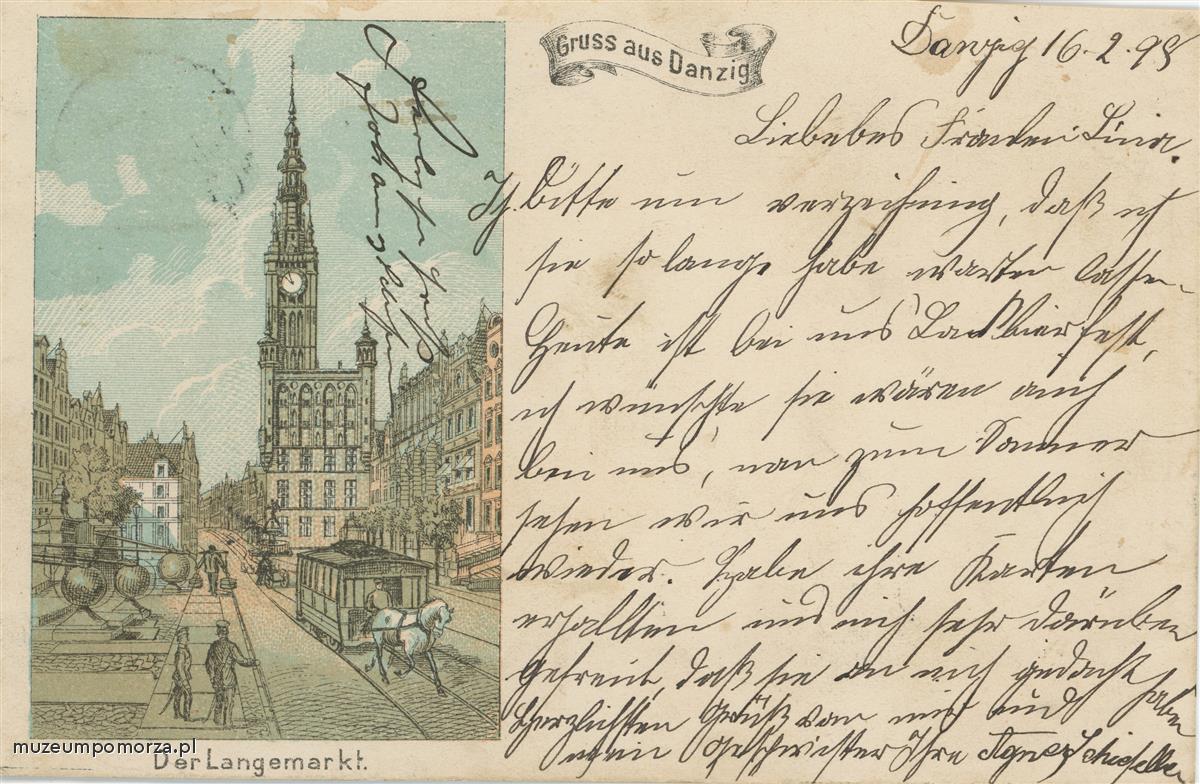 Gruss aus Danzig
Danzig 16.2.98
Liebebes Fräulein Lina.
Bitte um verzeihung, daß ich
sie so lange habe warten lassen.
Heute ist bei uns Bockbierfest,
ich wünschte sie wären auch
bei uns, nan zum Sommer
sehen wir uns hoffentlich
wieder. Habe ihre Karten
erhallten und mich sehr darüber
gefreut, daß sie an mich gedacht haben
Herzlichsten Grüß von mir und
mein Geschwister Ihre Agnes
Der Langemarkt.
muzeumpomorza.pl